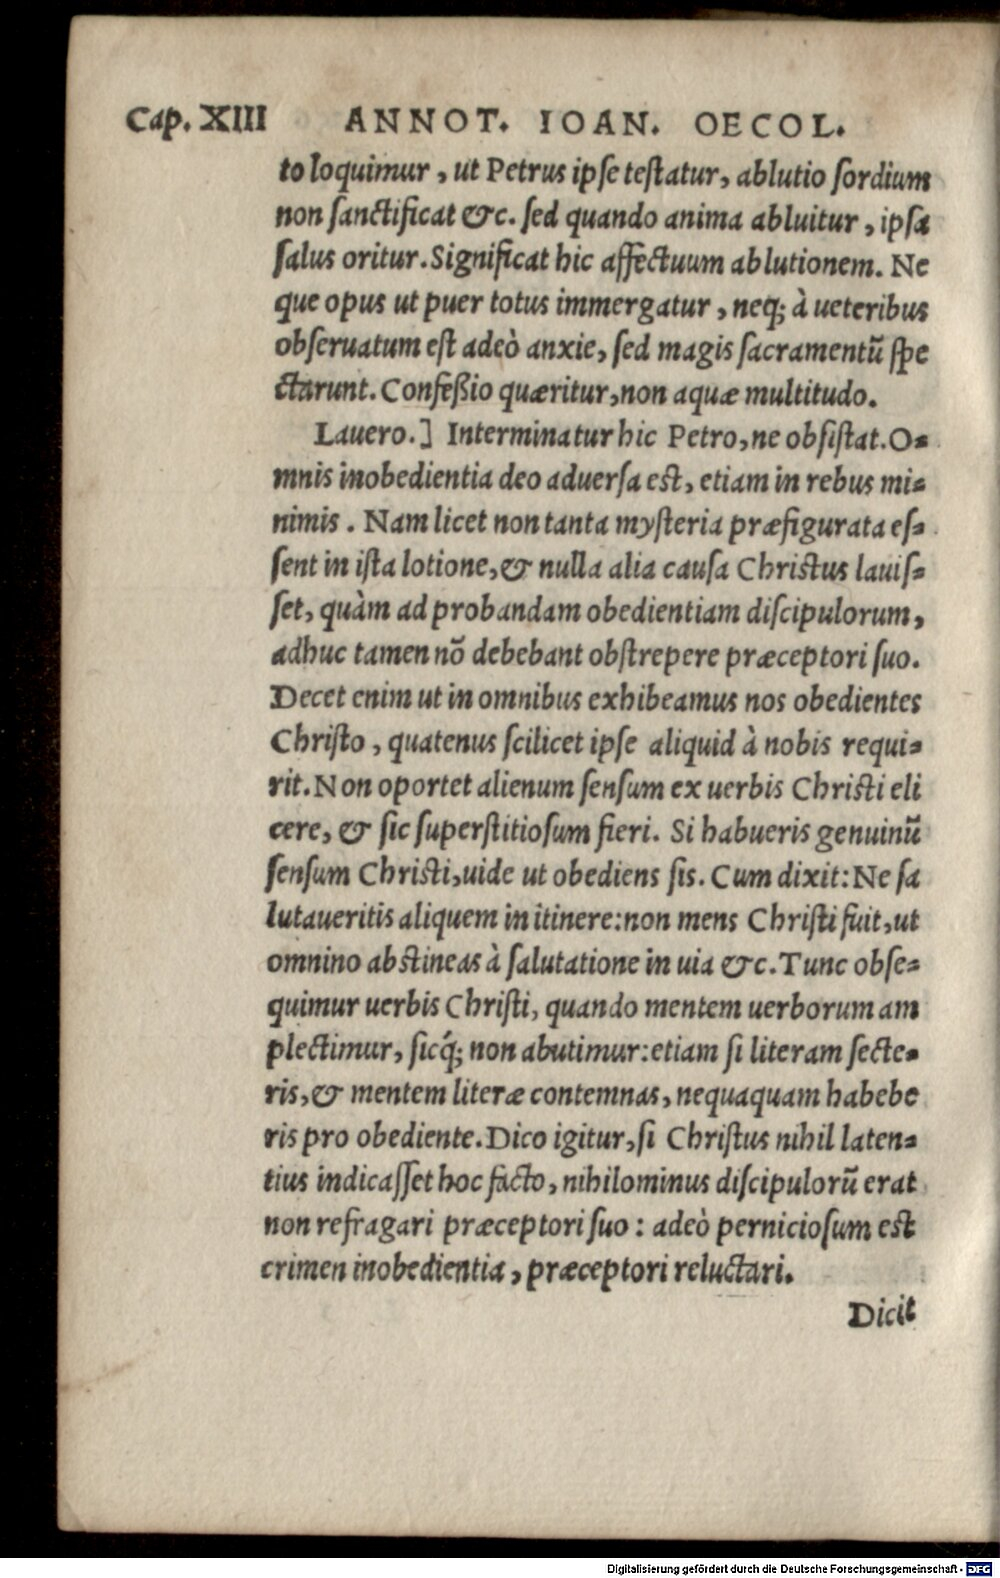 Cap. XIII ANNOT. IOAN. OECOL.
to loquimur, ut Petrus ipse testatur, ablutio sordium
non sanctificat &c. sed quando anima abluitur, ipsa
salus oritur. Significat hic affectuum ablutionem. Ne
que opus ut puer totus immergatur, neq; à ueteribus
obseruatum est adeò anxie, sed magis sacramentũ spe
ctarunt. Confeßio quæritur, non aquæ multitudo.
Lauero.] Interminatur hic Petro, ne obsistat. O-
mnis inobedientia deo aduersa est, etiam in rebus mi-
nimis. Nam licet non tanta mysteria præfigurata es-
sent in ista lotione, & nulla alia causa Christus lauis-
set, quàm ad probandam obedientiam discipulorum,
adhuc tamen nõ debebant obstrepere præceptori suo.
Decet enim ut in omnibus exhibeamus nos obedientes
Christo, quatenus scilicet ipse aliquid à nobis requi-
rit. Non oportet alienum sensum ex uerbis Christi eli
cere, & sic superstitiosum fieri. Si habueris genuinũ
sensum Christi, uide ut obediens sis. Cum dixit: Ne sa
lutaueritis aliquem in itinere: non mens Christi fuit, ut
omnino abstineas à salutatione in uia &c. Tunc obse-
quimur uerbis Christi, quando mentem uerborum am
plectimur, sicq́; non abutimur: etiam si literam secte-
ris, & mentem literæ contemnas, nequaquam habebe
ris pro obediente. Dico igitur, si Christus nihil laten-
tius indicasset hoc facto, nihilominus discipulorũ erat
non refragari præceptori suo: adeò perniciosum est
crimen inobedientia, præceptori reluctari.
Dicit
Digitalisierung gefördert durch die Deutsche Forschungsgemeinschaft - DFG